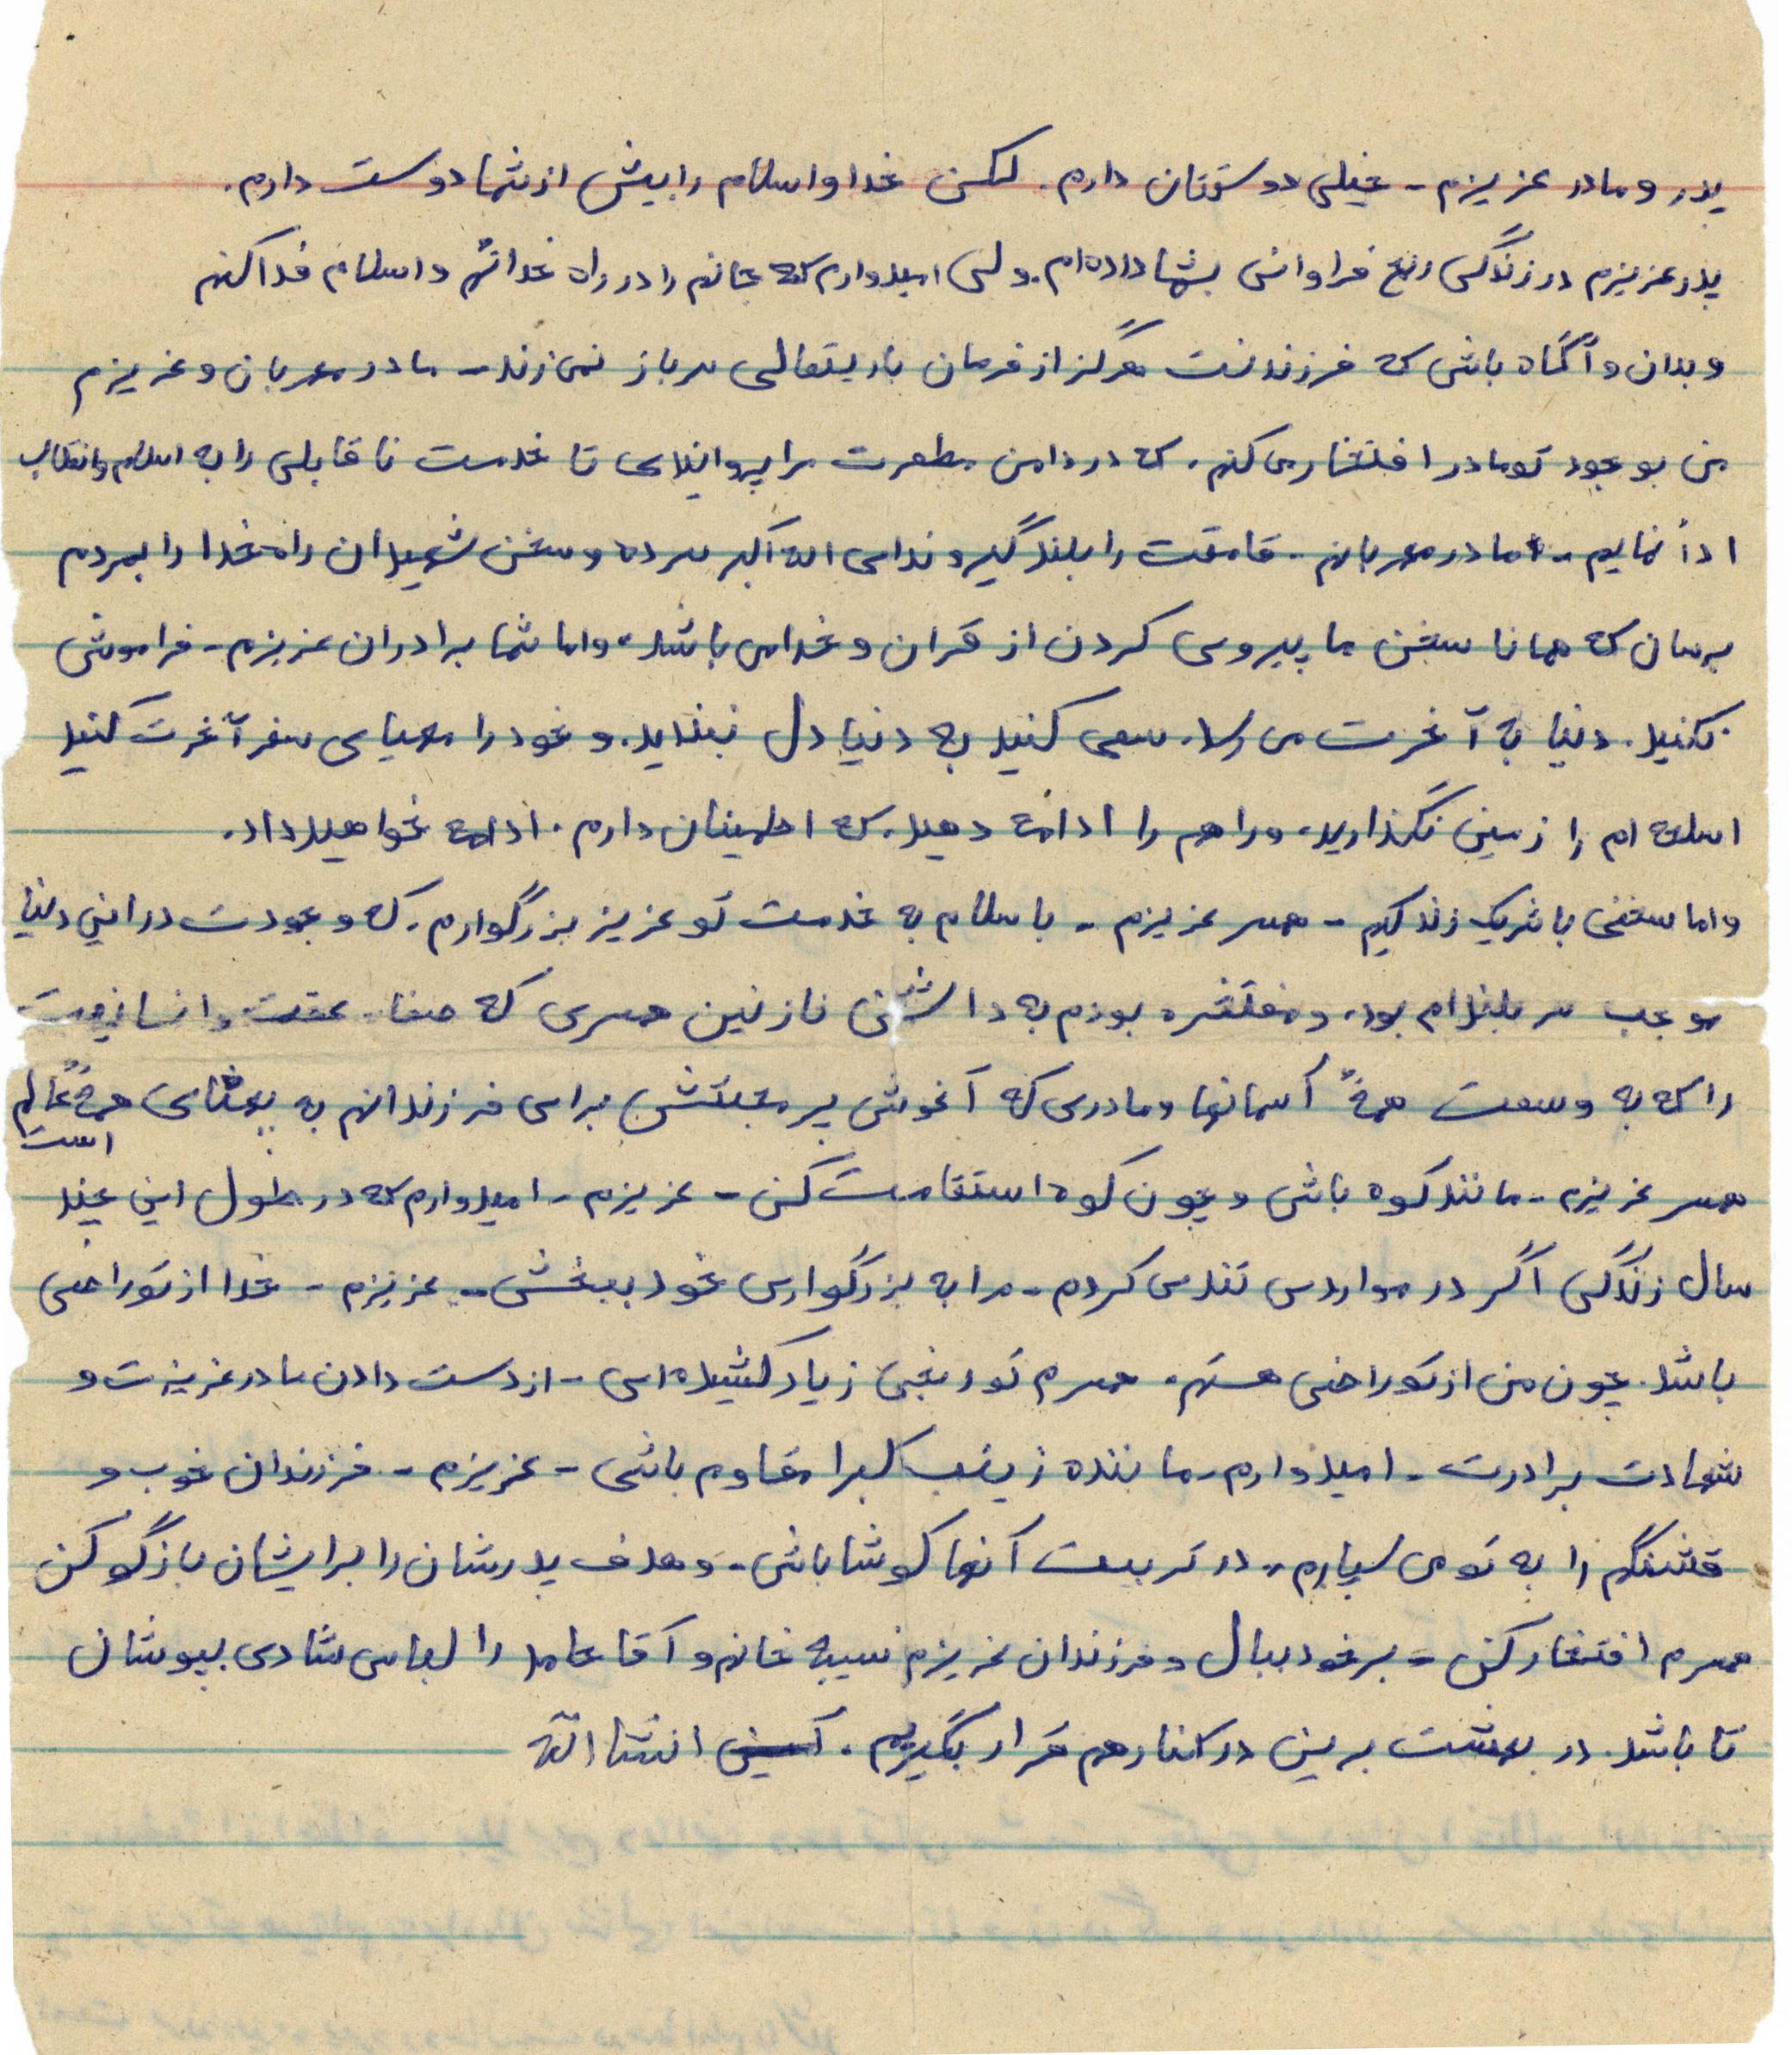 پدر و مادر عزیزم - خیلی دوستتان دارم. لکن خدا و اسلام را بیش از شما دوست دارم.
پدر عزیزم در زندگی رنج فراوانی بشما داده‌ام. ولی امیدوارم که جانم را در راه خدا و اسلام فدا کنم
و بدان و آگاه باش که فرزندت هرگز از فرمان باریتعالی سرباز نمی‌زند - مادر مهربان و عزیزم
من بوجود تو مادر افتخار می‌کنم. که در دامن مطهرت مرا پروانیدی تا خدمت ناقابلی را به اسلام و انقلاب
ادأ نمایم - مادر مهربانم - قامتت را بلند گیر و ندای الله اکبر سرده و سخن شهیدان راه خدا را بمردم
برسان که همانا سخن ما پیروی کردن از قران و خدا می باشد. و اما شما برادران عزیزم - فراموش
نکنید. دنیا به آخرت می رسد. سعی کنید به دنیا دل نبندید. و خود را مهیای سفر آخرت کنید
اسلحه ام را زمین نگذارید، و راهم را ادامه دهید. که اطمینان دارم. ادامه خواهید داد.
و اما سخنی با شریک زندگیم - همسر عزیزم - با سلام به خدمت تو عزیز بزرگوارم. که وجودت در این دنیا
موجب سر بلندام بود. و مفتخر بودم به داشتن نازنین همسری که صفا - عفت و انسانیت
را که به وسعت همهٔ آسمانها و مادری که آغوش پر محبتش برای فرزندانم به پهنای همهٔ عالم
است
همسر عزیزم - مانند کوه باش و چون کوه استقامت کن - عزیزم - امیدوارم که در طول این چند
سال زندگی اگر در مواردی تندی کردم - مرا به بزرگواری خود ببخش - عزیزم - خدا از تو راضی
باشد. چون من از تو راضی هستم. همسرم تو رنجی زیاد کشیده‌ای - از دست دادن مادر عزیزت و
شهادت برادرت - امیدوارم - ماننده زینب کبرا مقاوم باشی - عزیزم - فرزندان خوب و
قشنگم را به تو می سپارم. در تربیت آنها کوشا باش - و هدف پدرشان را برایشان بازگو کن
همسرم افتخار کن - بر خود ببال و فرزندان عزیزم نسیبه خانم و آقا حامد را لباس شادی بپوشان
تا باشد. در بهشت برین در کنار هم قرار بگیریم. انشاالله